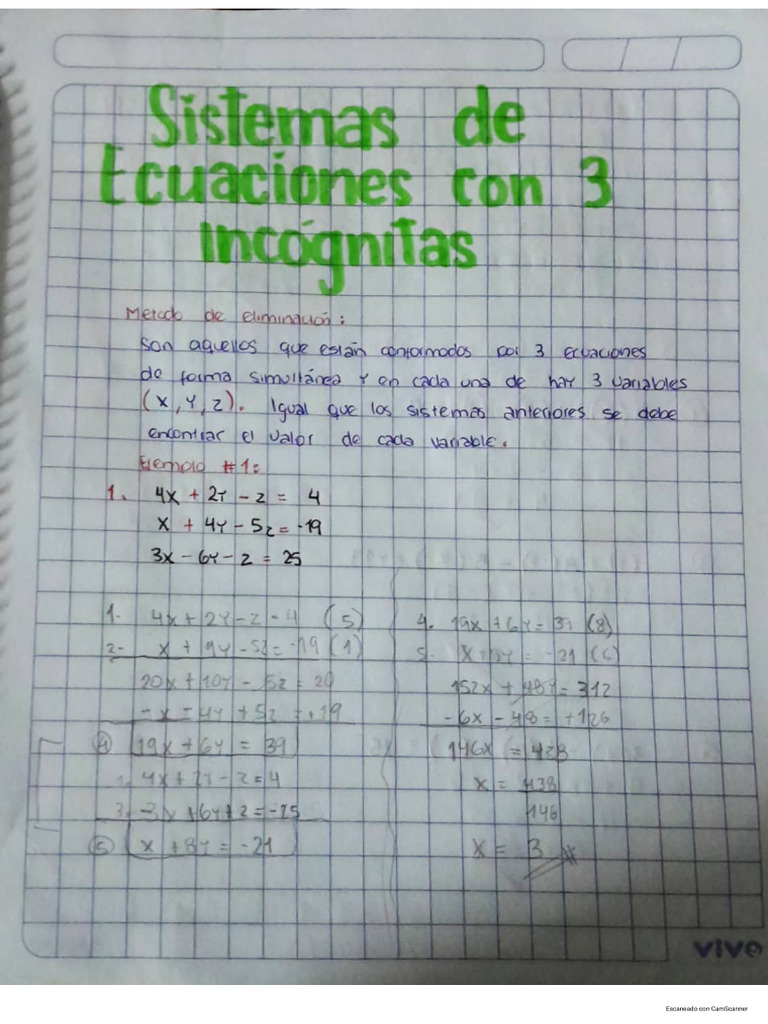 Sistemas de
Ecuaciones con 3
Incógnitas
Metodo de eliminación:
Son aquellos que están conformados por 3 ecuaciones
de forma simultánea y en cada una de hay 3 variables
(x, y, z). Igual que los sistemas anteriores se debe
encontrar el valor de cada variable.
Ejemplo #1:
1. 4x + 2y - z = 4
x + 4y - 5z = -19
3x - 6y - z = 25
1- 4x + 2y - z = 4 (5)
2- x + 4y - 5z = -19 (1)
20x + 10y - 5z = 20
-x - 4y + 5z = +19
(4) 19x + 6y = 39
1. 4x + 2y - z = 4
3. -3x + 6y + z = -25
(5) x + 8y = -21
4. 19x + 6y = 39 (8)
5. x + 8y = -21 (6)
152x + 48y = 312
-6x - 48 = +126
146x = 438
x = 438
146
x = 3
vivo
Escaneado con CamScanner